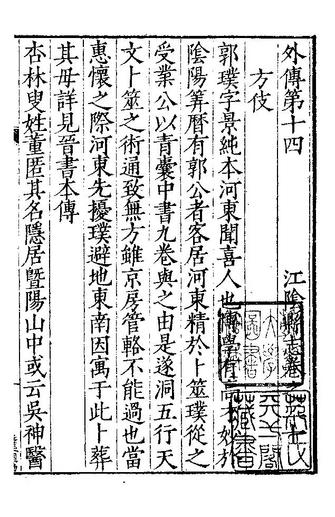 外傳第十四 江陰縣志卷
方伎
郭璞字景純本河東聞喜人也博學有高才妙於
陰陽筭曆有郭公者客居河東精於卜筮璞從之
受業公以青囊中書九卷與之由是遂洞五行天
文卜筮之術通致無方雖京房管輅不能過也當
惠懷之際河東先擾璞避地東南因寓于此卜葬
其母詳見晉書本傳
杏林叟姓董匿其名隱居暨陽山中或云吳神醫